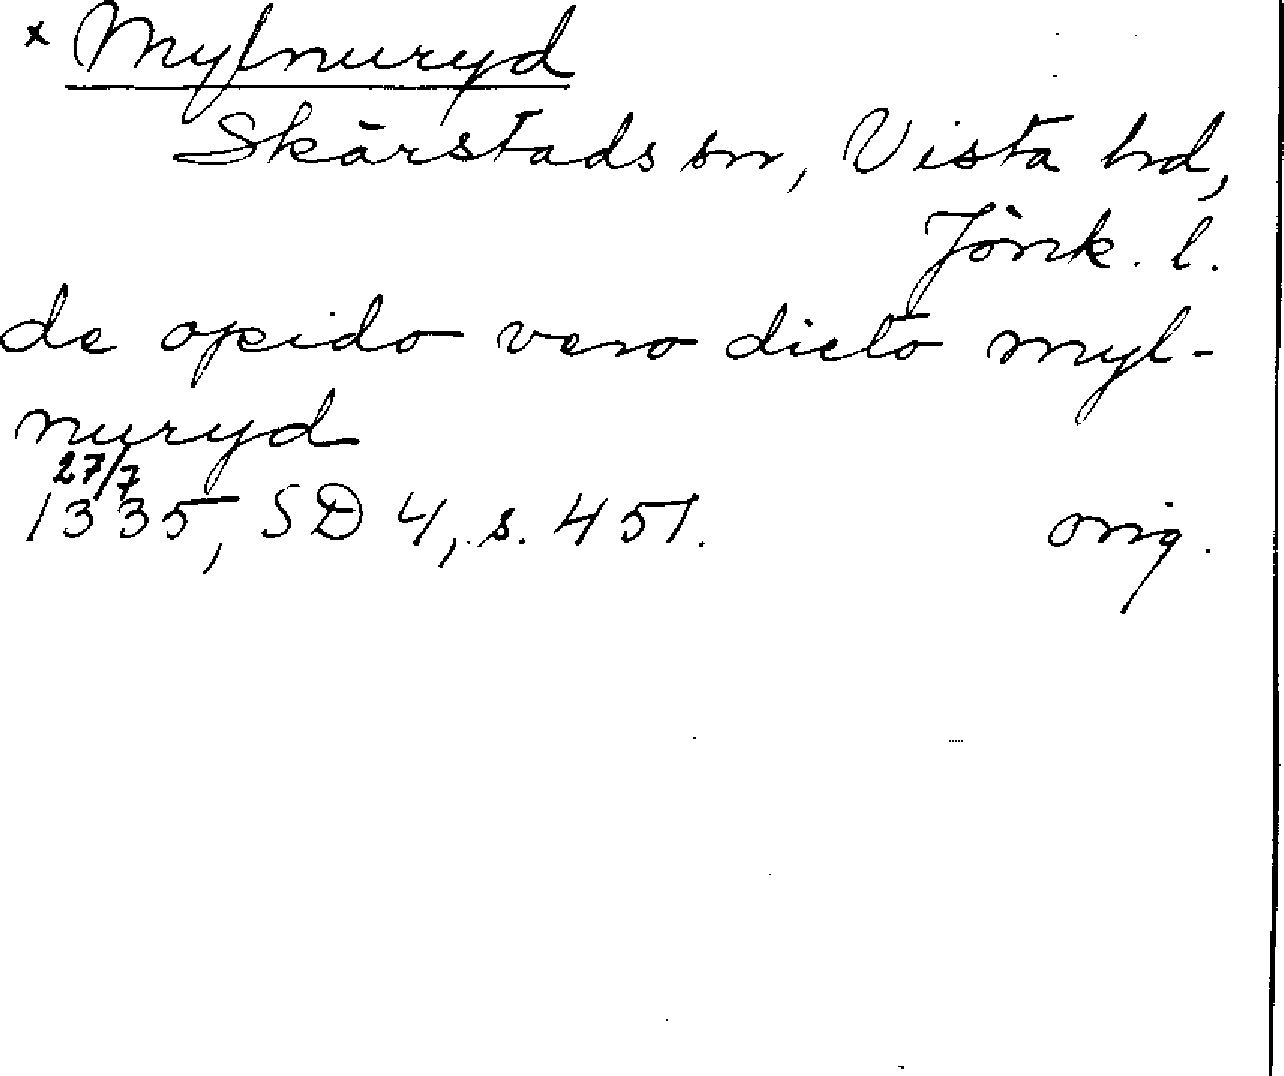 x Mylnuryd
Skärstads sn, Vista hd,
Jönk. l.
de opido vero dicto myl-
nuryd
27/7
1335, SD 4, s. 451. orig.